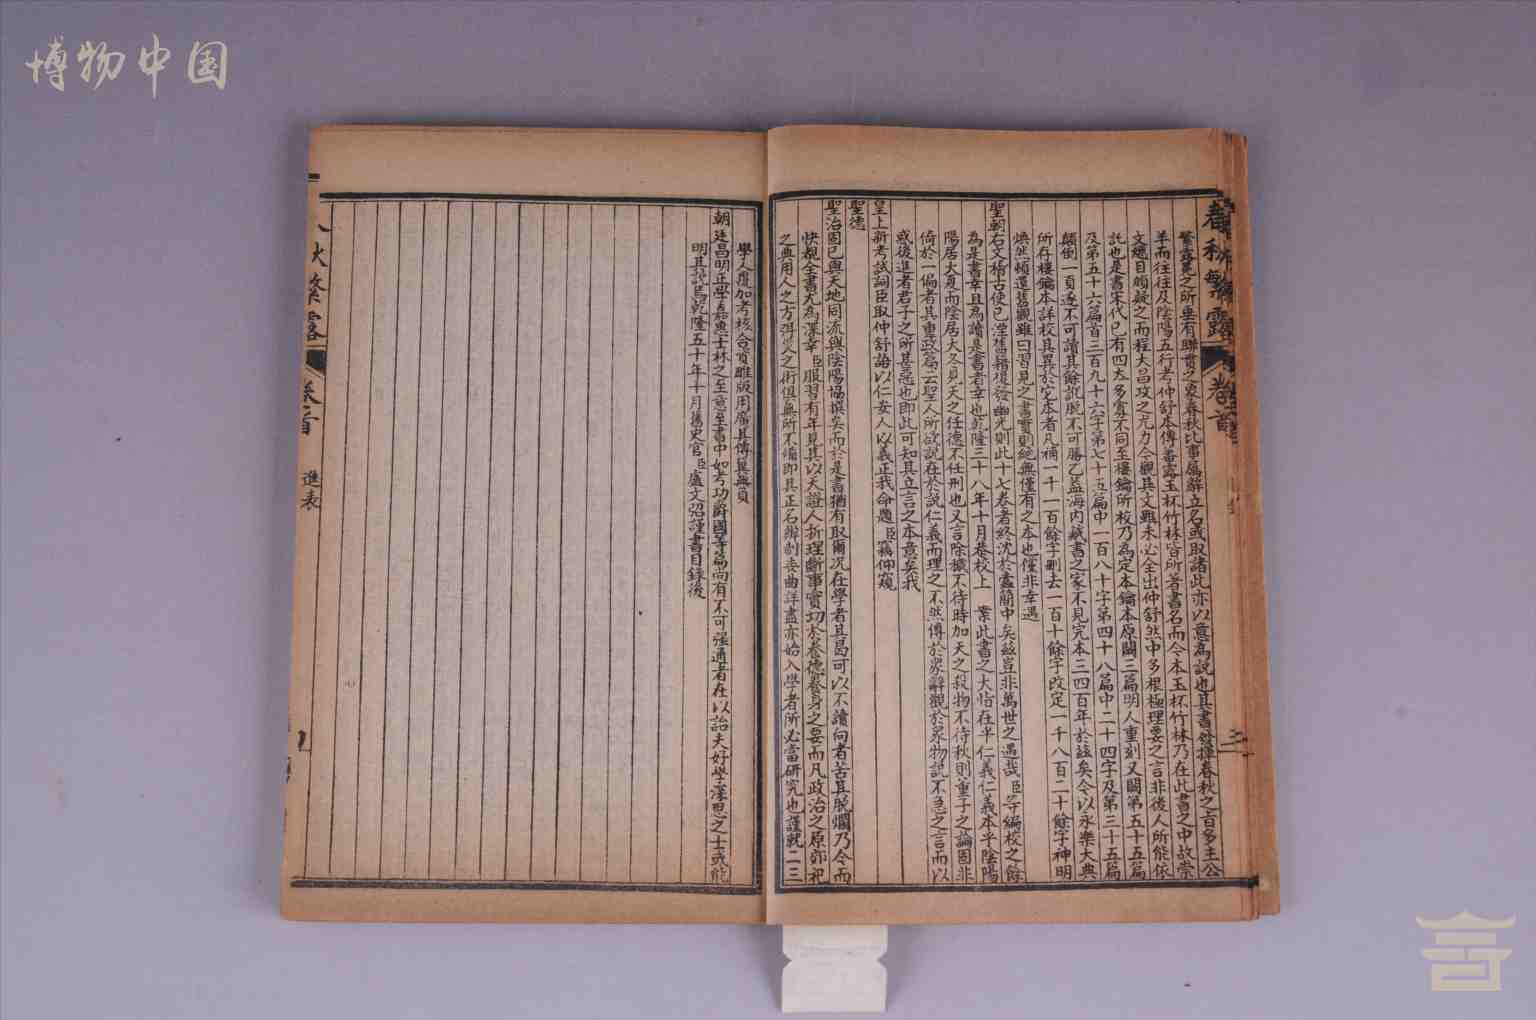 博物中国
春秋繁露
卷首
繁露冕之所垂有聯貫之象春秋比事屬辭立名或取諸此亦以意為說也其書發揮春秋之旨多主公
羊而往往及陰陽五行考仲舒本傳蕃露玉杯竹林皆所著書名而今本玉杯竹林乃在此書之中故崇
文總目頗疑之而程大昌攻之尤力今觀其文雖未必全出仲舒然中多根極理要之言非後人所能依
託也是書宋代已有四本多寡不同至樓鑰所校乃為定本鑰本原闕三篇明人重刻又闕第五十五篇
及第五十六篇首三百九十八字第七十五篇中一百八十字第四十八篇中二十四字及第三十五篇
顛倒一頁遂不可讀其餘訛脫不可勝乙蓋海內藏書之家不見完本三四百年於茲矣今以永樂大典
所存樓鑰本詳校其異於他本者凡補一千一百餘字刪去一百十餘字改定一千八百二十餘字神明
煥然頓還舊觀雖曰習見之書實則絕無僅有之本也儻非幸遇
聖朝右文稽古使已湮舊籍復發幽光則此十七卷者終沈於蠹簡中矣茲豈非萬世之遇哉臣等編校之餘
為是書幸且為讀是書者幸也乾隆三十八年十月恭校上　案此書之大恉在乎仁義仁義本乎陰陽
陽居大夏而陰居大冬見天之任德不任刑也又言除穢不待時如天之殺物不待秋則董子之論固非
倚於一偏者其重政篇云聖人所欲說在於說仁義而理之不然傳於眾辭觀於眾物說不急之言而以
惑後進者君子之所甚惡也即此可知其立言之本意矣我
皇上新考試詞臣取仲舒語以仁安人以義正我命題臣竊仰窺
聖德
聖治固已與天地同流與陰陽協撰矣而於是書猶有取爾況在學者其曷可以不讀向者苦其脫爛乃今而
快覩全書尤為深幸臣服習有年見其以天證人析理斷事實切於養德養身之要而凡政治之原郊祀
之典用人之方弭災之術俱無所不備即其正名辨制委曲詳盡亦始入學者所必當研究也謹就二三
學人覆加考核合資雕版用廣其傳冀無負
朝廷昌明正學嘉惠士林之至意至書中如考功爵國等篇尚有不可強通者在以詒夫好學深思之士或能
明其說焉乾隆五十年十月舊史官臣盧文弨謹書目錄後
秋繁露
卷首
進表